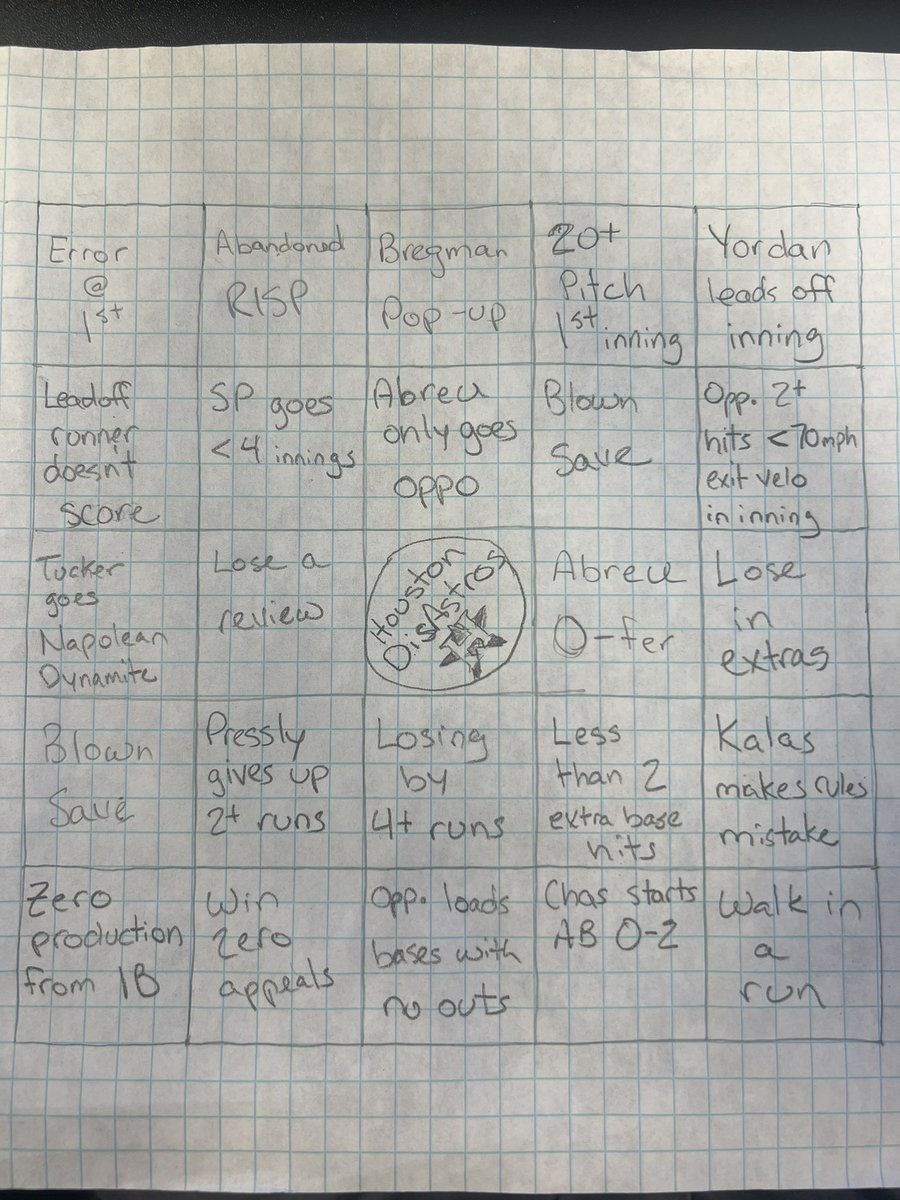 Error
@
1st
Abandoned
RISP
Bregman
Pop-up
20+
Pitch
1st inning
Yordan
leads off
inning
Leadoff
runner
doesn't
score
SP goes
<4 innings
Abreu
only goes
oppo
Blown
Save
Opp. 2+
hits <70mph
exit velo
in inning
Tucker
goes
Napolean
Dynamite
Lose a
review
Houston
DisAstros
Abreu
O-fer
Lose
in
extras
Blown
Save
Pressly
gives up
2+ runs
Losing
by
4+ runs
Less
than 2
extra base
hits
Kalas
makes rules
mistake
Zero
production
from 1B
Win
zero
appeals
Opp. loads
bases with
no outs
Chas starts
AB 0-2
Walk in
a
run